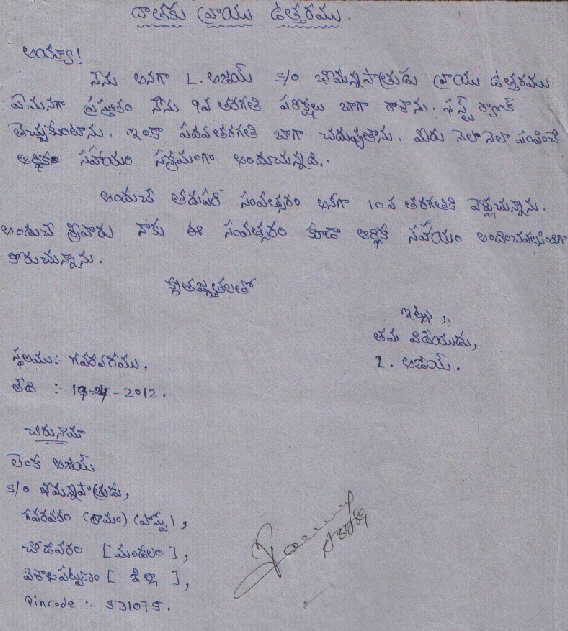 దాతకు వ్రాయు ఉత్తరము.
అయ్యా!
నేను అనగా L. అజయ్ S/o భీమన్నపాత్రుడు వ్రాయు ఉత్తరము
ఏమనగా ప్రస్తుతం నేను 9వ తరగతి పరీక్షలు బాగా రాశాను. ఫస్ట్ ర్యాంక్
తెచ్చుకుంటాను. ఇంకా పదవతరగతి బాగా చదువుతాను. మీరు నెలా నెలా పంపించే
ఆర్థిక సహాయం సక్రమంగా అందుచున్నది.
అందుచే తరువాత సంవత్సరం అనగా 10వ తరగతికి వెళ్ళుచున్నాను.
అందుచే శ్రీవారు నాకు ఈ సంవత్సరం కూడా ఆర్థిక సహాయం
కోరుచున్నాను.
కృతజ్ఞతలతో
ఇట్లు,,
తమ విధేయుడు,
L. అజయ్.
స్థలము: గవరవరము.
తేది : -2012.
చిరునామా
లెంక అజయ్
S/o భీమన్నపాత్రుడు,
గవరవరం (గ్రామం) (పోస్టు),
చోడవరం [మండలం],
విశాఖపట్టణం [జిల్లా],
Pincode :- 531075.